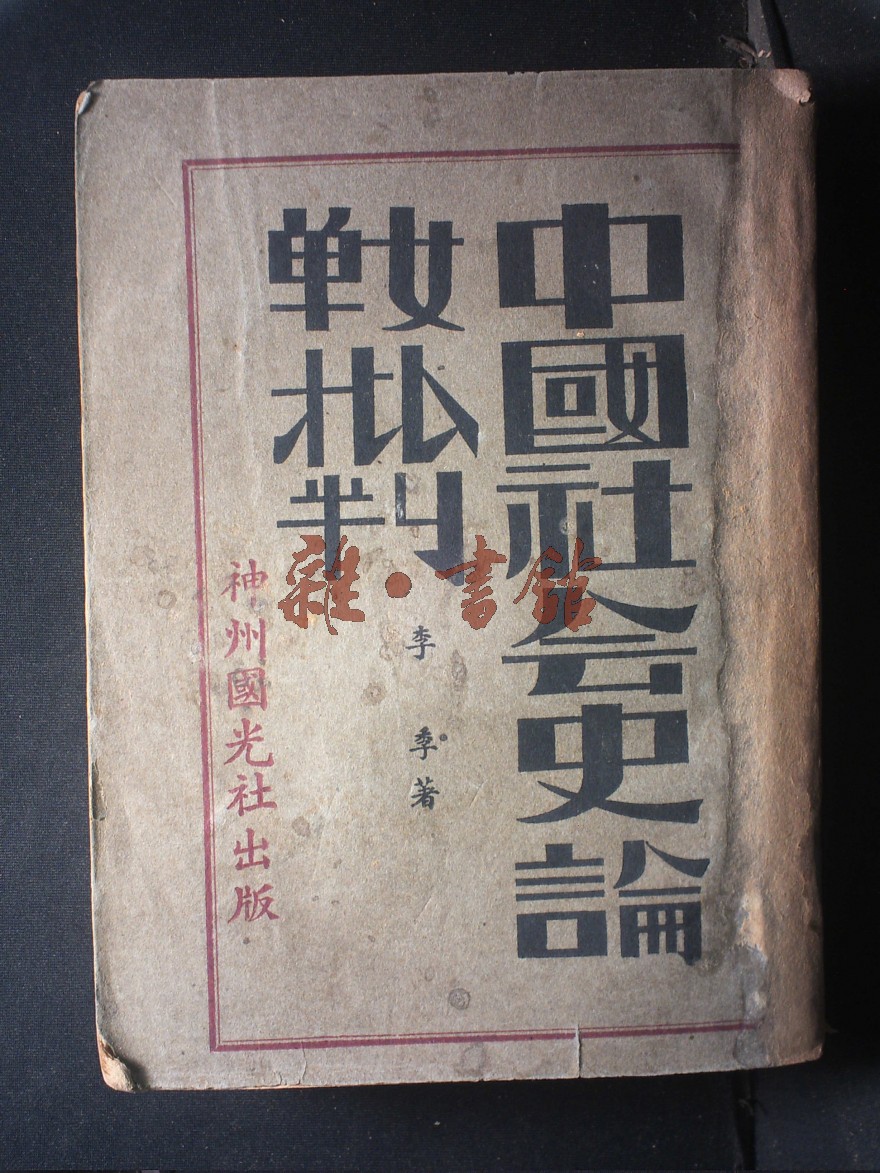 中國社会史論
戰批判
李季著
神州國光社出版
雜·書館